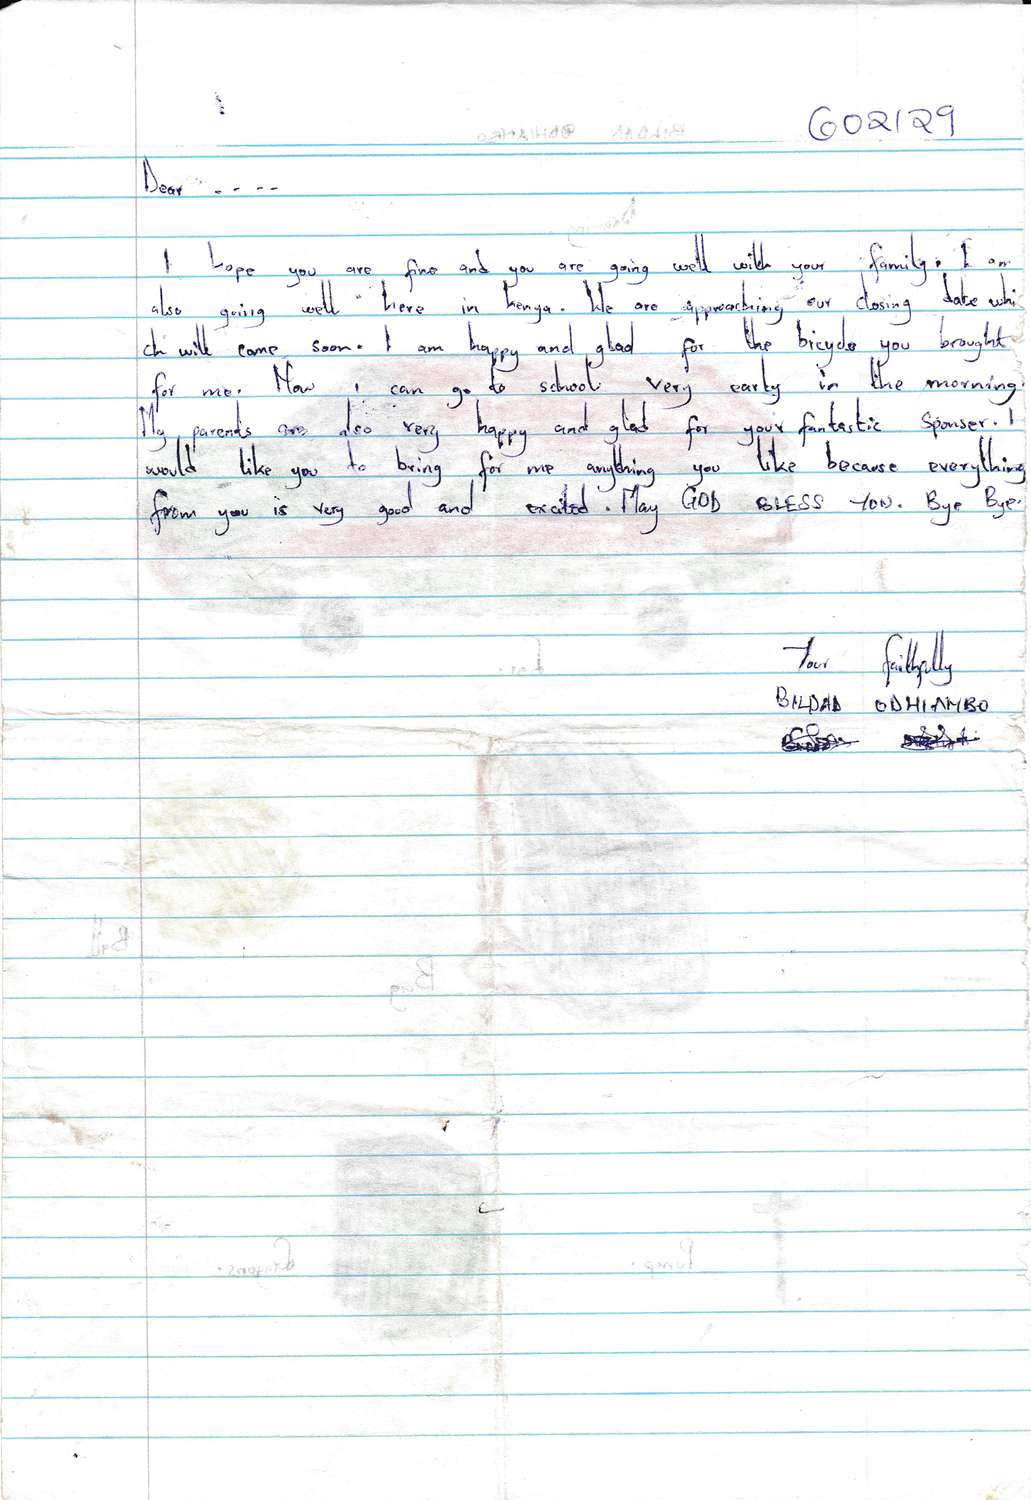 602129
Dear ----
I hope you are fine and you are going well with your family. I am
also going well here in kenya. We are approaching our closing date whi
ch will come soon. I am happy and glad for the bicycle you brought
for me. Now i can go to school very early in the morning.
My parents are also very happy and glad for your fantastic Sponser. I
would like you to bring for me anything you like because everything
from you is very good and excited. May GOD BLESS YOU. Bye Bye.
Your faithfully
BILDAD ODHIAMBO
BILDAD ODHIAMBO
Drawing
Car.
Ball
Bag
Crayons.
Pump.